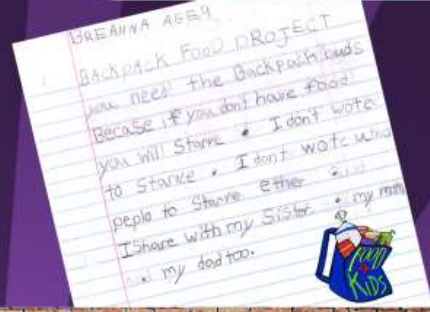 BREANNA AGE 9
BACKPACK FOOD PROJECT
you need the Backpack buds
Becase if you dont have food
you will Starve . I don't wote
to Starve . I dont wote
peplo to Starve ether
I Share with my Sister . my mom
my dad too.
FOOD
4
KIDS